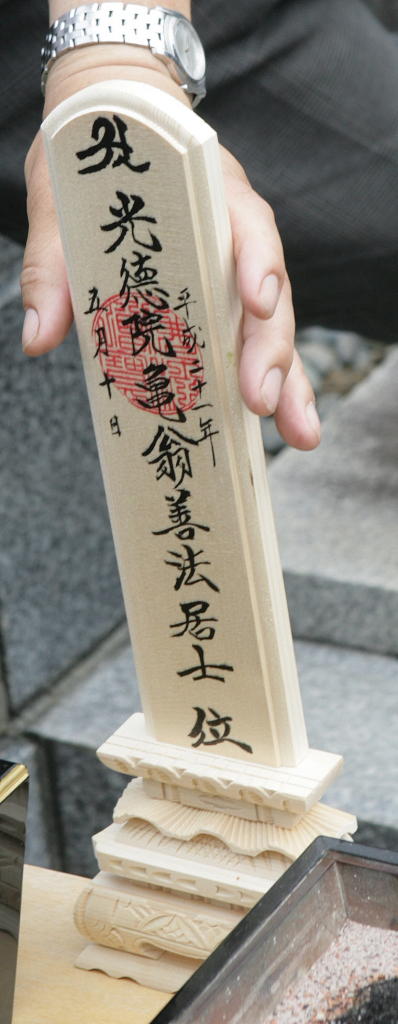 平成二十一年
光德院亀翁善法居士位
五月十日